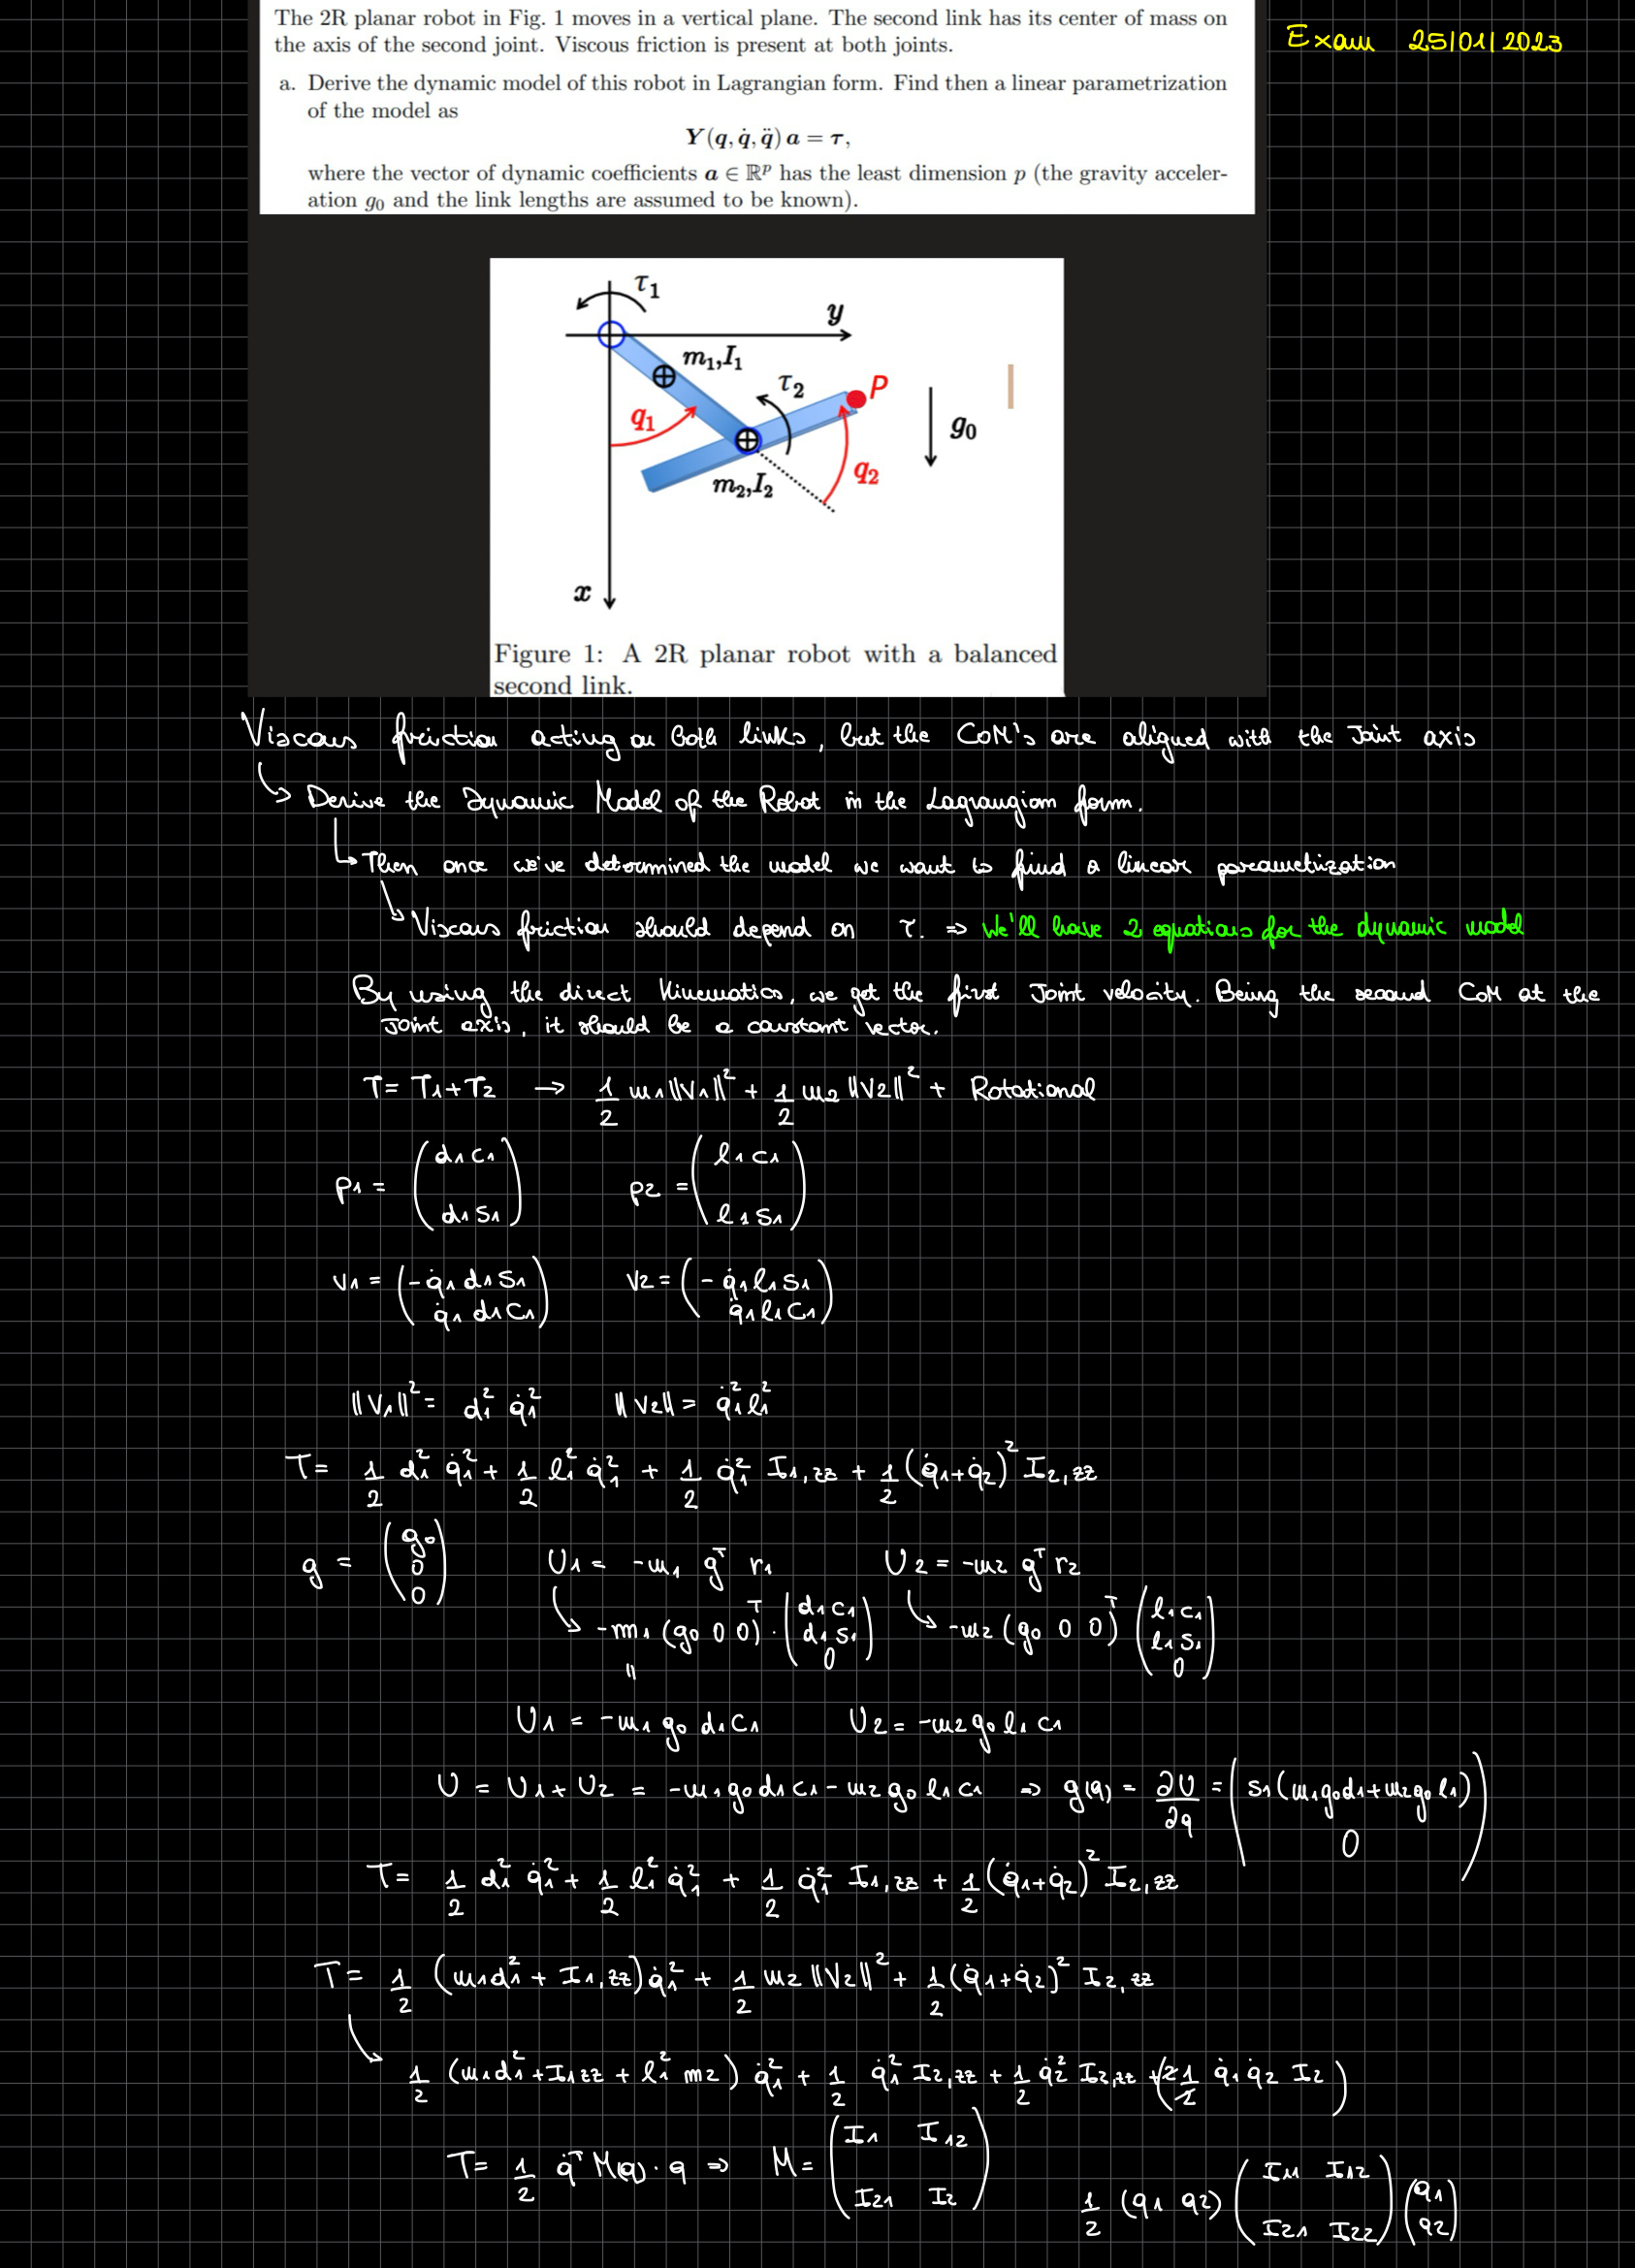 The 2R planar robot in Fig. 1 moves in a vertical plane. The second link has its center of mass on
the axis of the second joint. Viscous friction is present at both joints.
Exam 25/01/2023
a. Derive the dynamic model of this robot in Lagrangian form. Find then a linear parametrization
of the model as
Y(q, q̇, q̈) a = τ,
where the vector of dynamic coefficients a ∈ ℝᵖ has the least dimension p (the gravity acceler-
ation g₀ and the link lengths are assumed to be known).
τ₁
y
m₁,I₁
τ₂
P
q₁
g₀
q₂
m₂,I₂
x
Figure 1: A 2R planar robot with a balanced
second link.
Viscous friction acting on both links, but the CoM's are aligned with the Joint axis
↳ Derive the Dynamic Model of the Robot in the Lagrangian form.
↳ Then once we've determined the model we want to find a linear parametrization
↳ Viscous friction should depend on τ. ⇒ We'll have 2 equations for the dynamic model
By using the direct Kinematics, we get the first Joint velocity. Being the second CoM at the
Joint axis, it should be a constant vector.
T = T1 + T2 → 1/2 m1 ||V1||² + 1/2 m2 ||V2||² + Rotational
p1 = (d1 c1 ; d1 s1) p2 = (l1 c1 ; l1 s1)
v1 = (-q̇1 d1 s1 ; q̇1 d1 c1) v2 = (-q̇1 l1 s1 ; q̇1 l1 c1)
||V1||² = d1² q̇1² ||V2|| = q̇1² l1²
T = 1/2 d1² q̇1² + 1/2 l1² q̇1² + 1/2 q̇1² I1,zz + 1/2 (q̇1+q̇2)² I2,zz
g = (g0 ; 0 ; 0) U1 = -m1 gᵀ r1 U2 = -m2 gᵀ r2
↳ -m1 (g0 0 0)ᵀ · (d1 c1 ; d1 s1 ; 0) ↳ -m2 (g0 0 0)ᵀ (l1 c1 ; l1 s1 ; 0)
=
U1 = -m1 g0 d1 c1 U2 = -m2 g0 l1 c1
U = U1 + U2 = -m1 g0 d1 c1 - m2 g0 l1 c1 ⇒ g(q) = ∂U/∂q = (s1 (m1 g0 d1 + m2 g0 l1) ; 0)
T = 1/2 d1² q̇1² + 1/2 l1² q̇1² + 1/2 q̇1² I1,zz + 1/2 (q̇1+q̇2)² I2,zz
T = 1/2 (m1 d1² + I1,zz) q̇1² + 1/2 m2 ||V2||² + 1/2 (q̇1+q̇2)² I2,zz
↳ 1/2 (m1 d1² + I1zz + l1² m2) q̇1² + 1/2 q̇1² I2,zz + 1/2 q̇2² I2,zz + (2 1/2 q̇1 q̇2 I2)
T = 1/2 q̇ᵀ M(q) · q ⇒ M = (I1 I12 ; I21 I2)
1/2 (q1 q2) (I11 I12 ; I21 I22) (q1 ; q2)